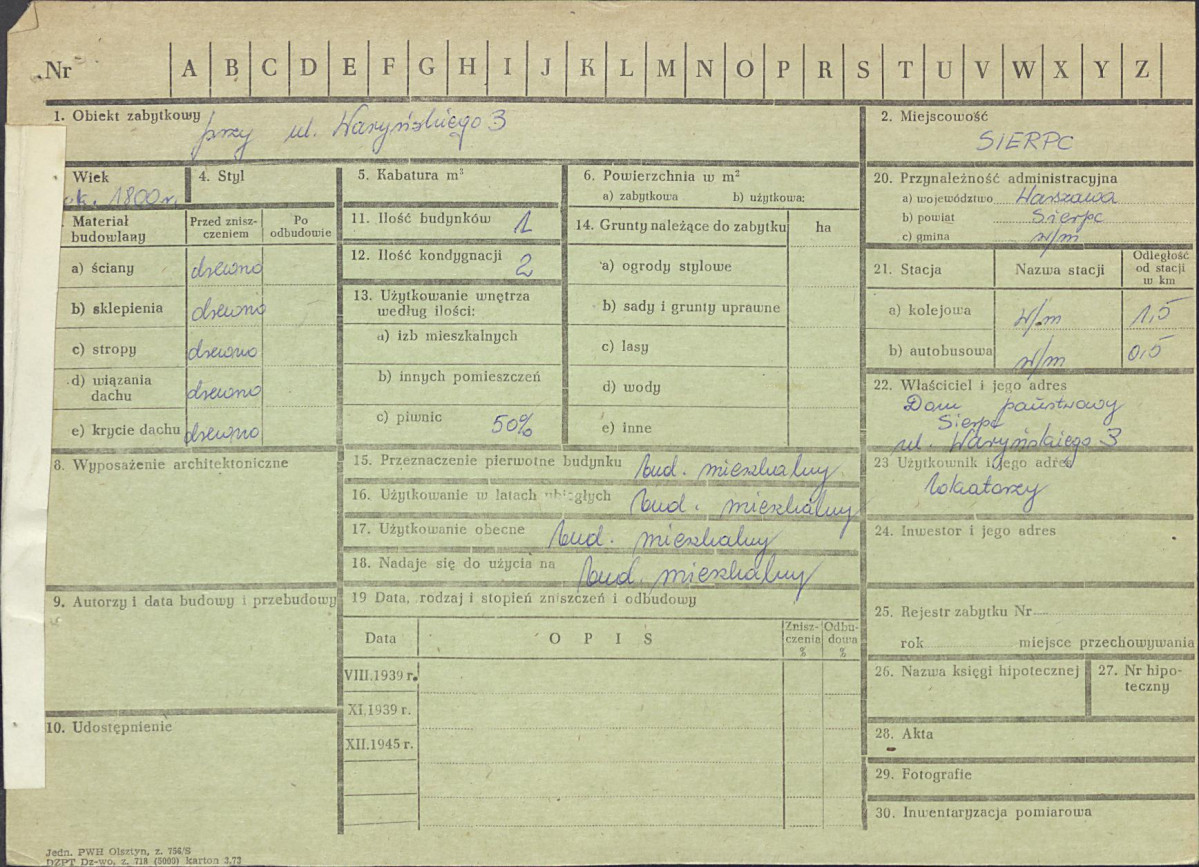 Nr A B C D E F G H I J K L M N O P R S T U V W X Y Z
1. Obiekt zabytkowy przy ul. Waryńskiego 3
2. Miejscowość
SIERPC
Wiek
ok. 1800 r.
4. Styl
5. Kabatura m³
6. Powierzchnia w m²
a) zabytkowa b) użytkowa:
20. Przynależność administracyjna
a) województwo Warszawa
b) powiat Sierpc
c) gmina w/m
Materiał budowlany
Przed znisz-
czeniem
Po
odbudowie
a) ściany drewno
b) sklepienia drewno
c) stropy drewno
d) wiązania
dachu drewno
e) krycie dachu drewno
11. Ilość budynków 1
12. Ilość kondygnacji 2
13. Użytkowanie wnętrza
według ilości:
a) izb mieszkalnych
b) innych pomieszczeń
c) piwnic 50%
14. Grunty należące do zabytku ha
a) ogrody stylowe
b) sady i grunty uprawne
c) lasy
d) wody
e) inne
21. Stacja Nazwa stacji
Odległość
od stacji
w km
a) kolejowa w/m 1,5
b) autobusowa w/m 0,5
22. Właściciel i jego adres
Dom państwowy
Sierpc
ul. Waryńskiego 3
8. Wyposażenie architektoniczne
15. Przeznaczenie pierwotne budynku bud. mieszkalny
16. Użytkowanie w latach ubiegłych bud. mieszkalny
17. Użytkowanie obecne bud. mieszkalny
18. Nadaje się do użycia na bud. mieszkalny
23 Użytkownik i jego adres
lokatorzy
24. Inwestor i jego adres
9. Autorzy i data budowy i przebudowy
19 Data, rodzaj i stopień zniszczeń i odbudowy
Data O P I S
Znisz-
czenia
%
Odbu-
dowa
%
VIII.1939 r.
XI.1939 r.
XII.1945 r.
25. Rejestr zabytku Nr
rok miejsce przechowywania
26. Nazwa księgi hipotecznej
27. Nr hipo-
teczny
10. Udostępnienie
28. Akta
29. Fotografie
30. Inwentaryzacja pomiarowa
Jedn. PWH Olsztyn, z. 756/S
DZPT Dz-wo, z. 718 (5000) karton 3.73